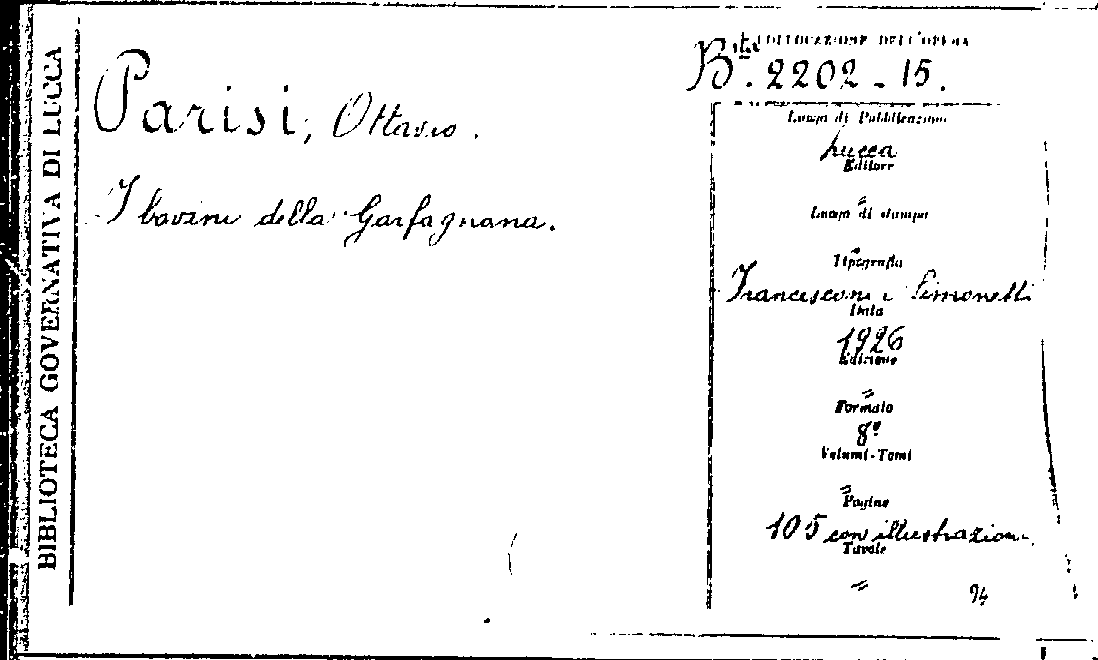 BIBLIOTECA GOVERNATIVA DI LUCCA
Parisi, Ottavio.
I bovini della Garfagnana.
COLLOCAZIONE DELL'OPERA
Bta. 2202-15.
Luogo di Pubblicazione
Lucca
Editore
"
Luogo di stampa
"
Tipografia
Francesconi e Simonetti
Data
1926
Edizione
"
Formato
8º
Volumi-Tomi
"
Pagine
105 con illustrazioni
Tavole
"
94